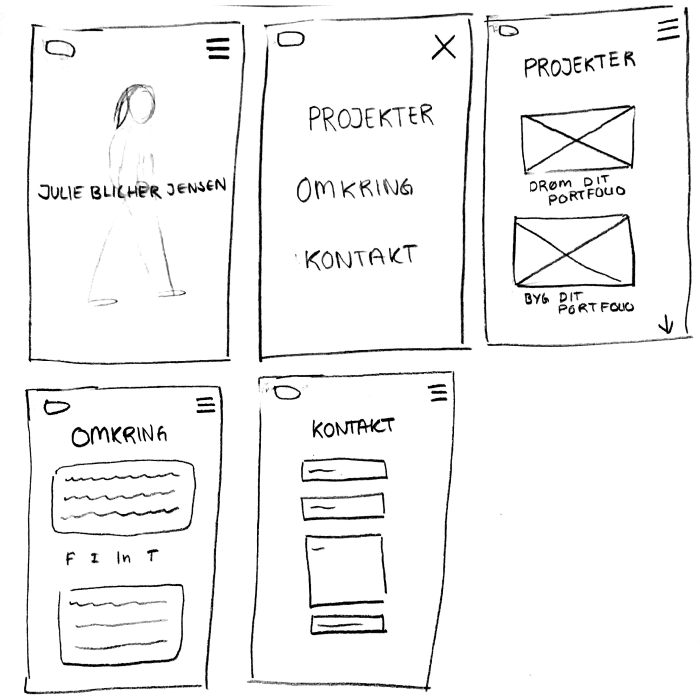 JULIE BLICHER JENSEN
PROJEKTER
OMKRING
KONTAKT
PROJEKTER
DRØM DIT
PORTFOLIO
BYG DIT
PORTFOLIO
OMKRING
F I In T
KONTAKT